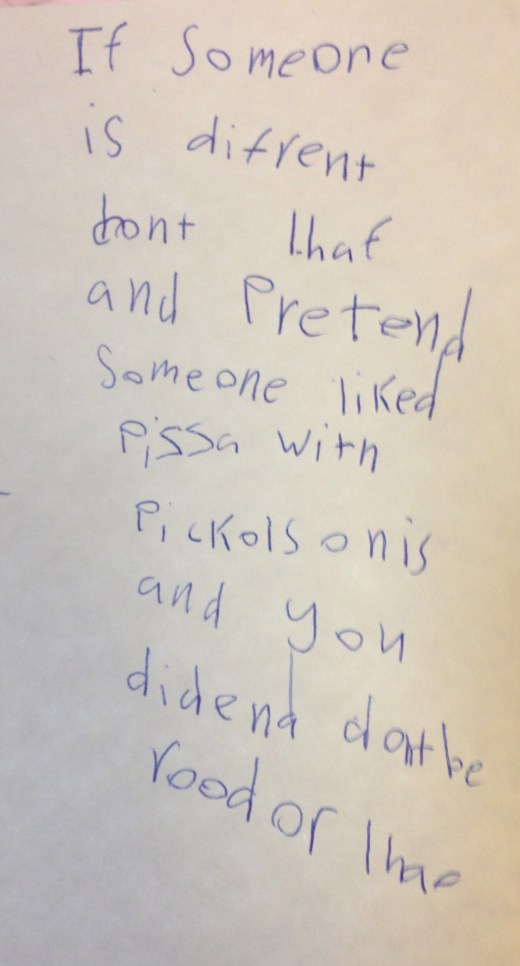 If Someone
is difrent
dont lhaf
and Pretend
Someone liked
Pissa with
Pickols onis
and you
didend dontbe
rood or lhae